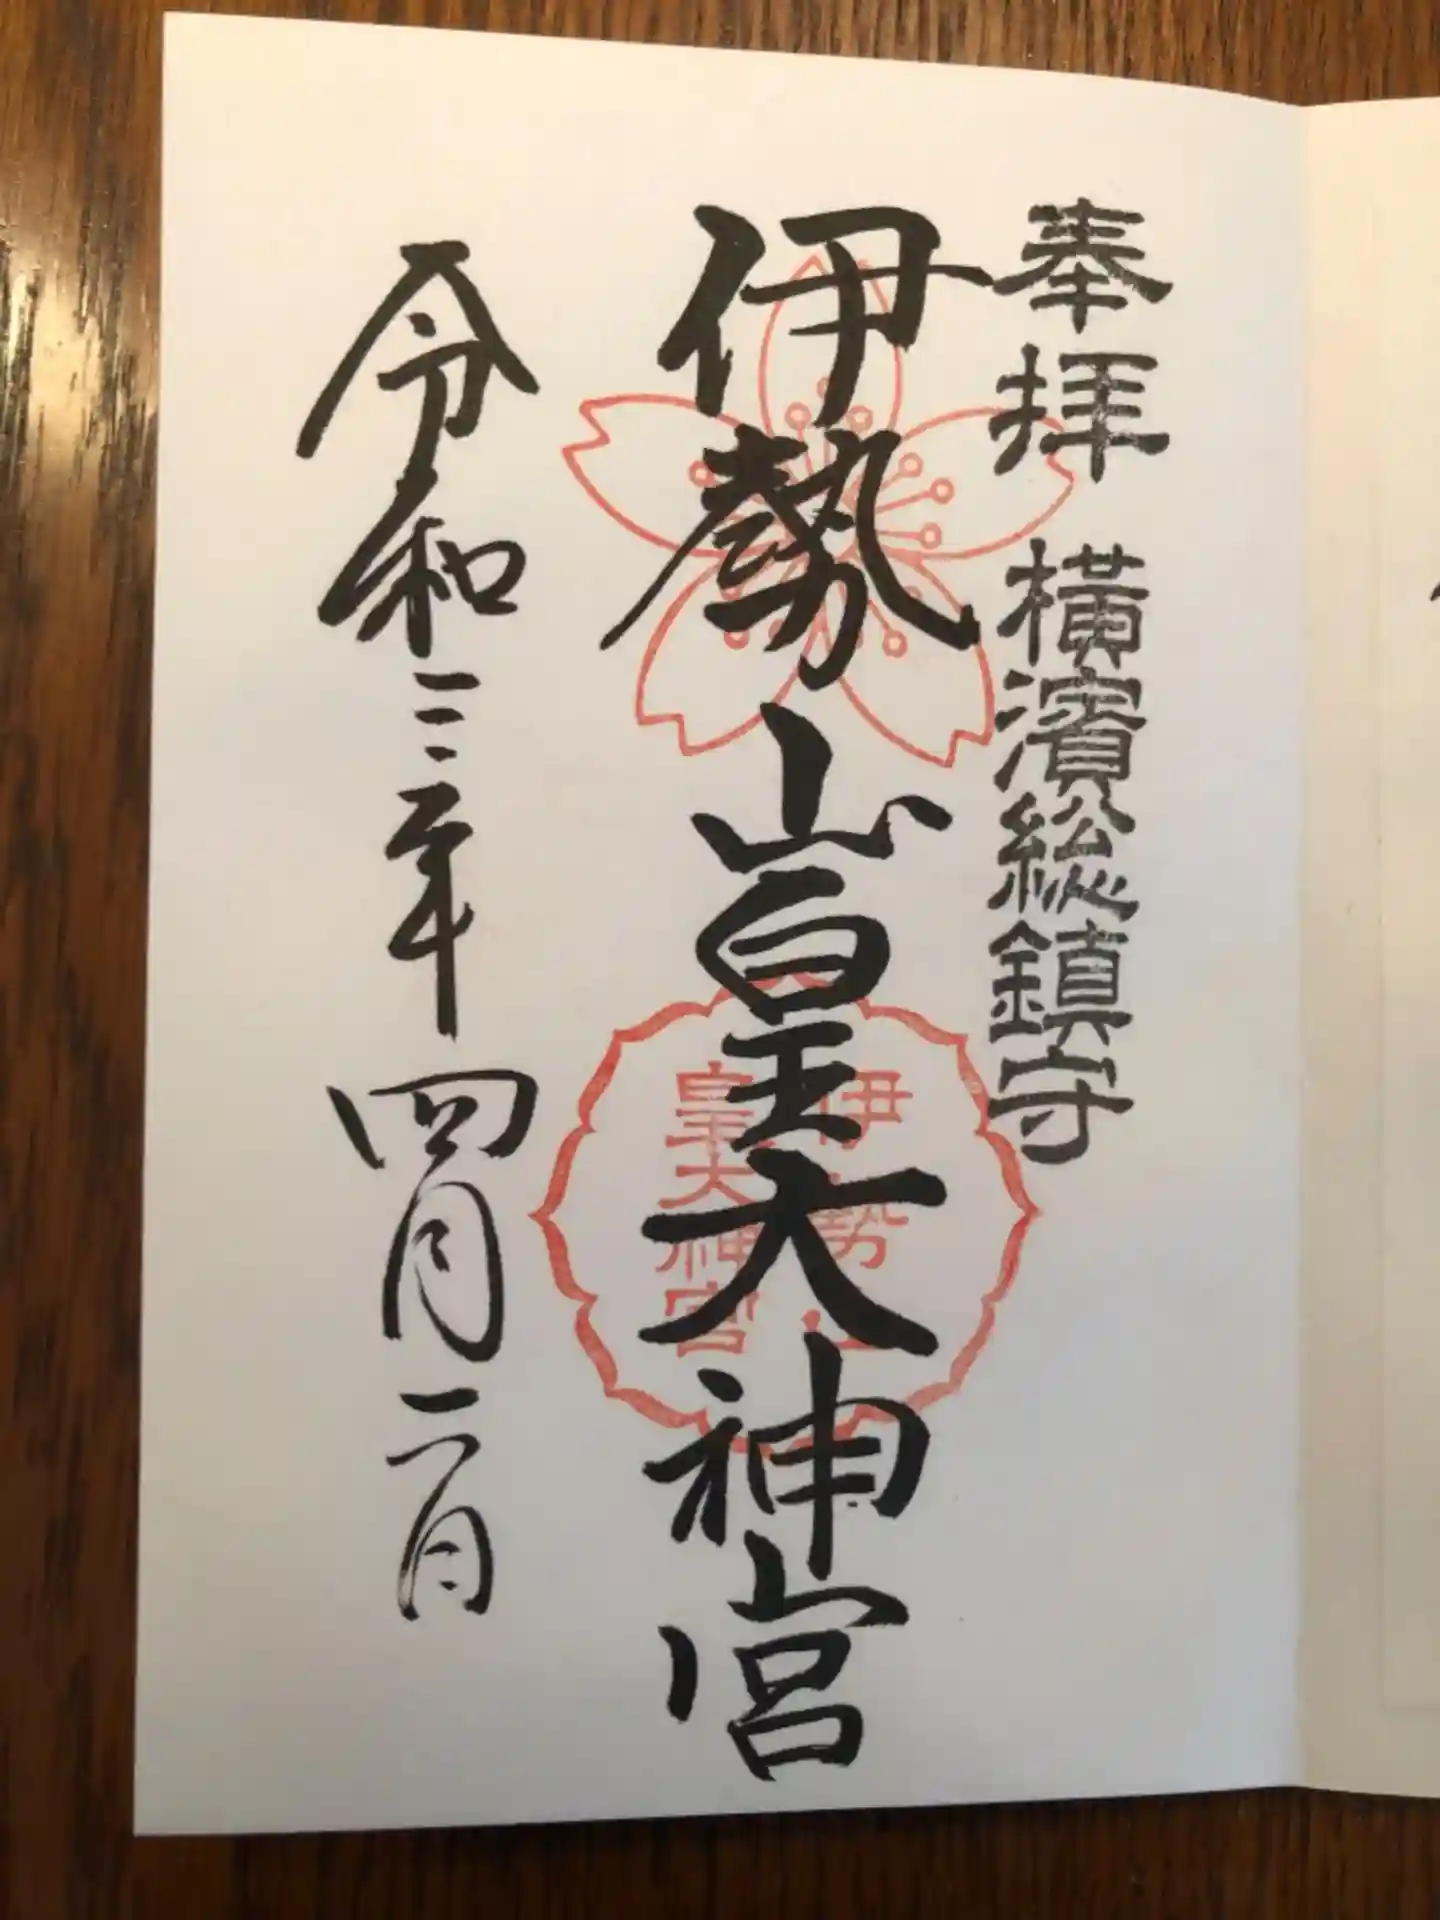 奉拝 横濱総鎮守
伊勢山皇大神宮
令和三年四月二日
伊勢山
皇大神宮